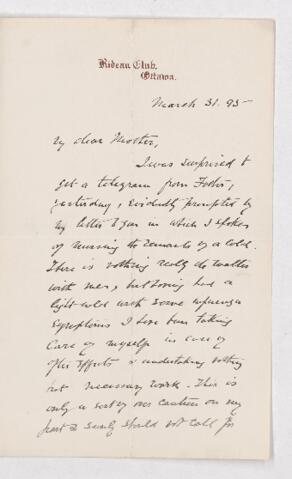 Rideau Club,
Ottawa.
March 31. 95
My dear Mother,
I was surprised to
get a telegram from Foster,
yesterday, evidently prompted by
my letter to you in which I spoke
of nursing the remnants of a cold.
There is nothing really the matter
with me, but having had a
light cold with some influenza
symptoms I have been taking
care of myself in case of
after effects & undertaking nothing
but necessary work. This is
only a sort of over caution on my
part & surely should not call for